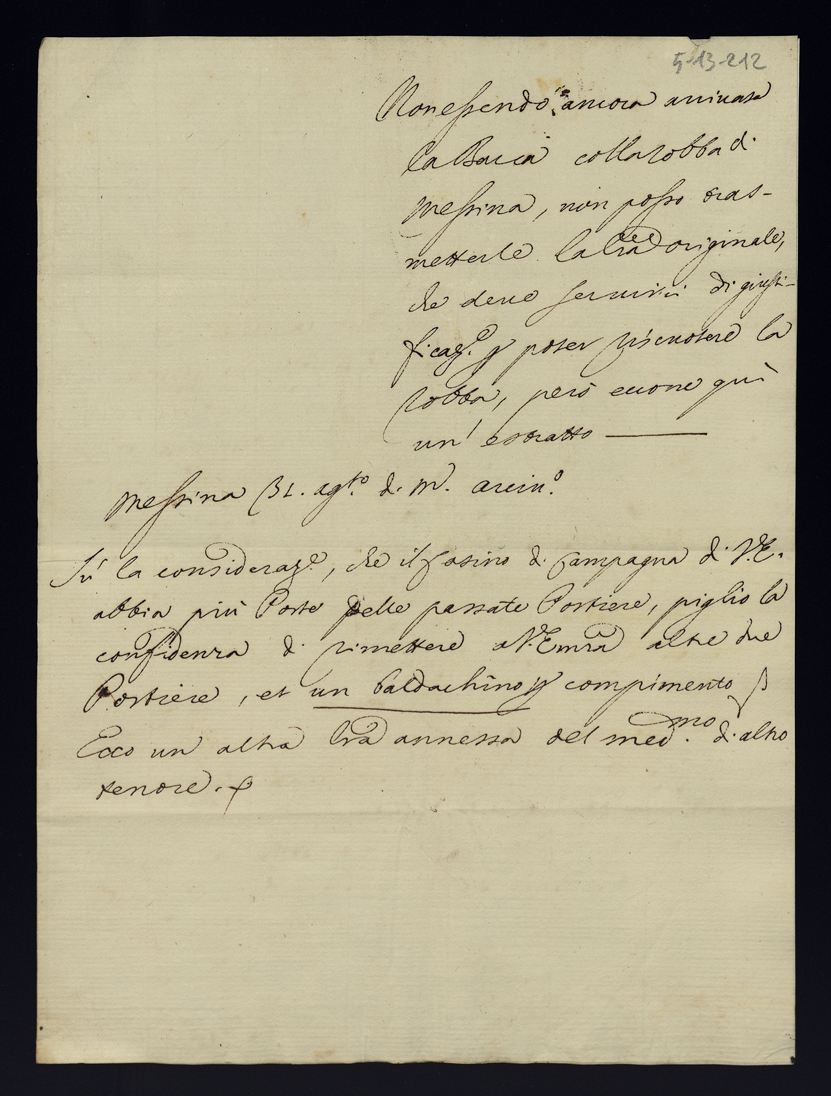 5-13-212
Non essendo ancora arrivata
la Barca colla robba di
Messina, non posso tras-
metterle la lra originale,
che deve servirvi di giusti-
ficaz.e p poter riscuotere la
robba, però eccone quì
un' estratto
Messina 31. ag.to di M.
Sù la consideraz.e, che il Casino di Campagna di V.E.
abbia più Porte delle passate Portiere, piglio la
confidenza di rimettere a V. Emza altre due
Portiere, et un baldachino p compimento
Ecco un altra lra annessa del med.mo di altro
tenore.